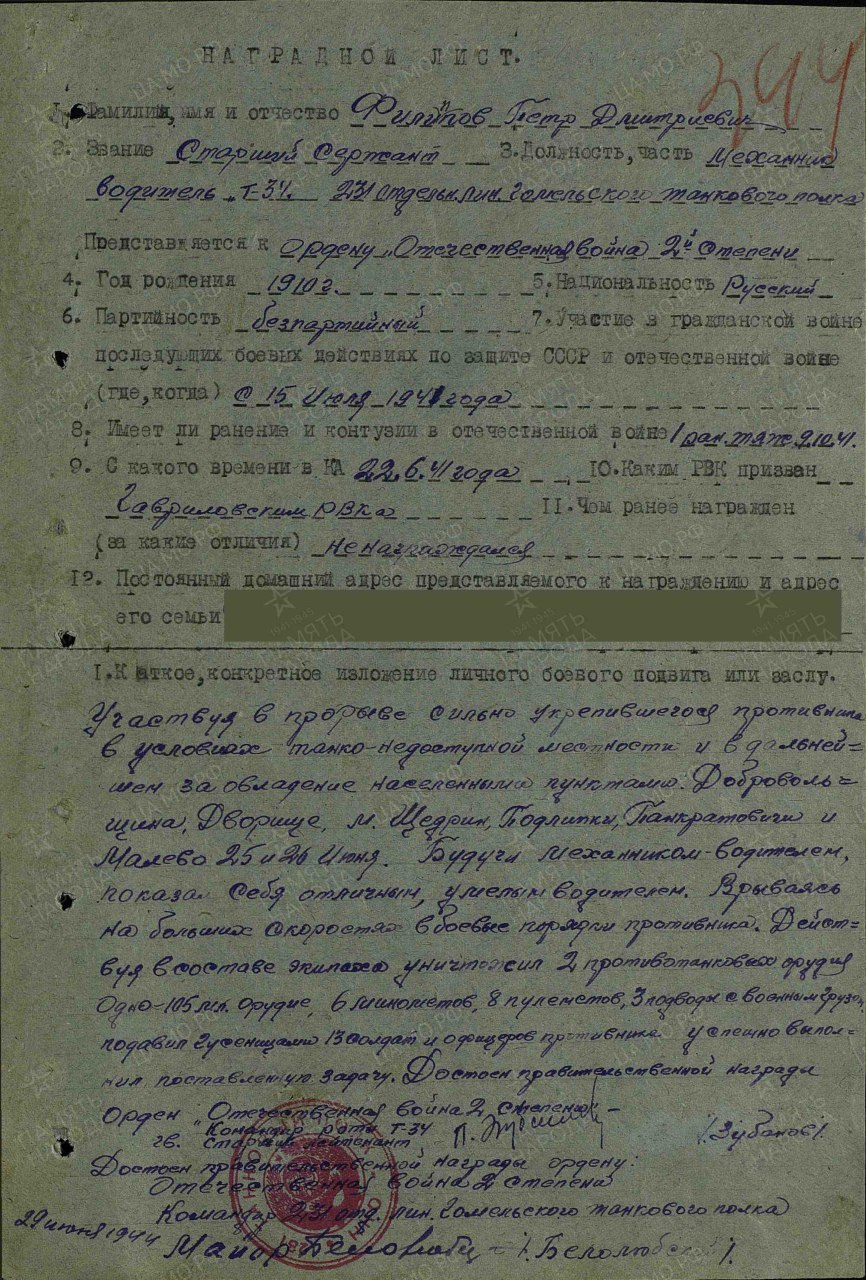 344
НАГРАДНОЙ ЛИСТ.
1. Фамилия, имя и отчество Филипов Петр Дмитриевич
2. Звание Старший Сержант 3. Должность, часть Механник
водитель „Т-34." 231 отдельн. лин. Гомельского танкового полка
Представляется к ордену „Отечественная война 2й степени
4. Год рождения 1910 г. 5. Национальность Русский
6. Партийность безпартийный 7. Участие в гражданской войне
последующих боевых действиях по защите СССР и отечественной войне
(где, когда) с 15 Июля 1941 года
8. Имеет ли ранение и контузии в отечественной войне 1 ран. тяж. 9.10.41.
9. С какого времени в КА 22.6.41 года 10. Каким РВК призван
Гавриловским РВКа 11. Чем ранее награжден
(за какие отличия) не награждался
12. Постоянный домашний адрес представляемого к награждению и адрес
его семьи
1. К аткое, конкретное изложение личного боевого подвига или заслу.
Участвуя в прорыве сильно укрепившегося противника
в условиях танко-недоступной местности и в дальней=
шем за овладение населенными пунктами. Доброволь=
щина, Дворище, м. Щедрин, Подлипки, Панкратовичи и
Малево 25 и 26 Июня. Будучи механником-водителем,
показал себя отличным, умелым водителем. Врываясь
на больших скоростях в боевые порядки противника. Дейст=
вуя в составе экипажа уничтожил 2 противотанковых орудия
одно-105 мл. орудие, 6 минометов, 8 пулеметов, 3 подводы с военным грузо,
подавил гусеницами 13 солдат и офицеров противника успешно выпол=
нил поставленную задачу. Достоен правительственной награды
орден „Отечественная война 2 степени" –
Командир роты Т-34
гв. старший лейтенант /. Зубанов /.
Достоен правительственной награды ордену:
Отечественная война 2 степени
Командир 231 отд. лин. Гомельского танкового полка
29 июня 1944 Майор